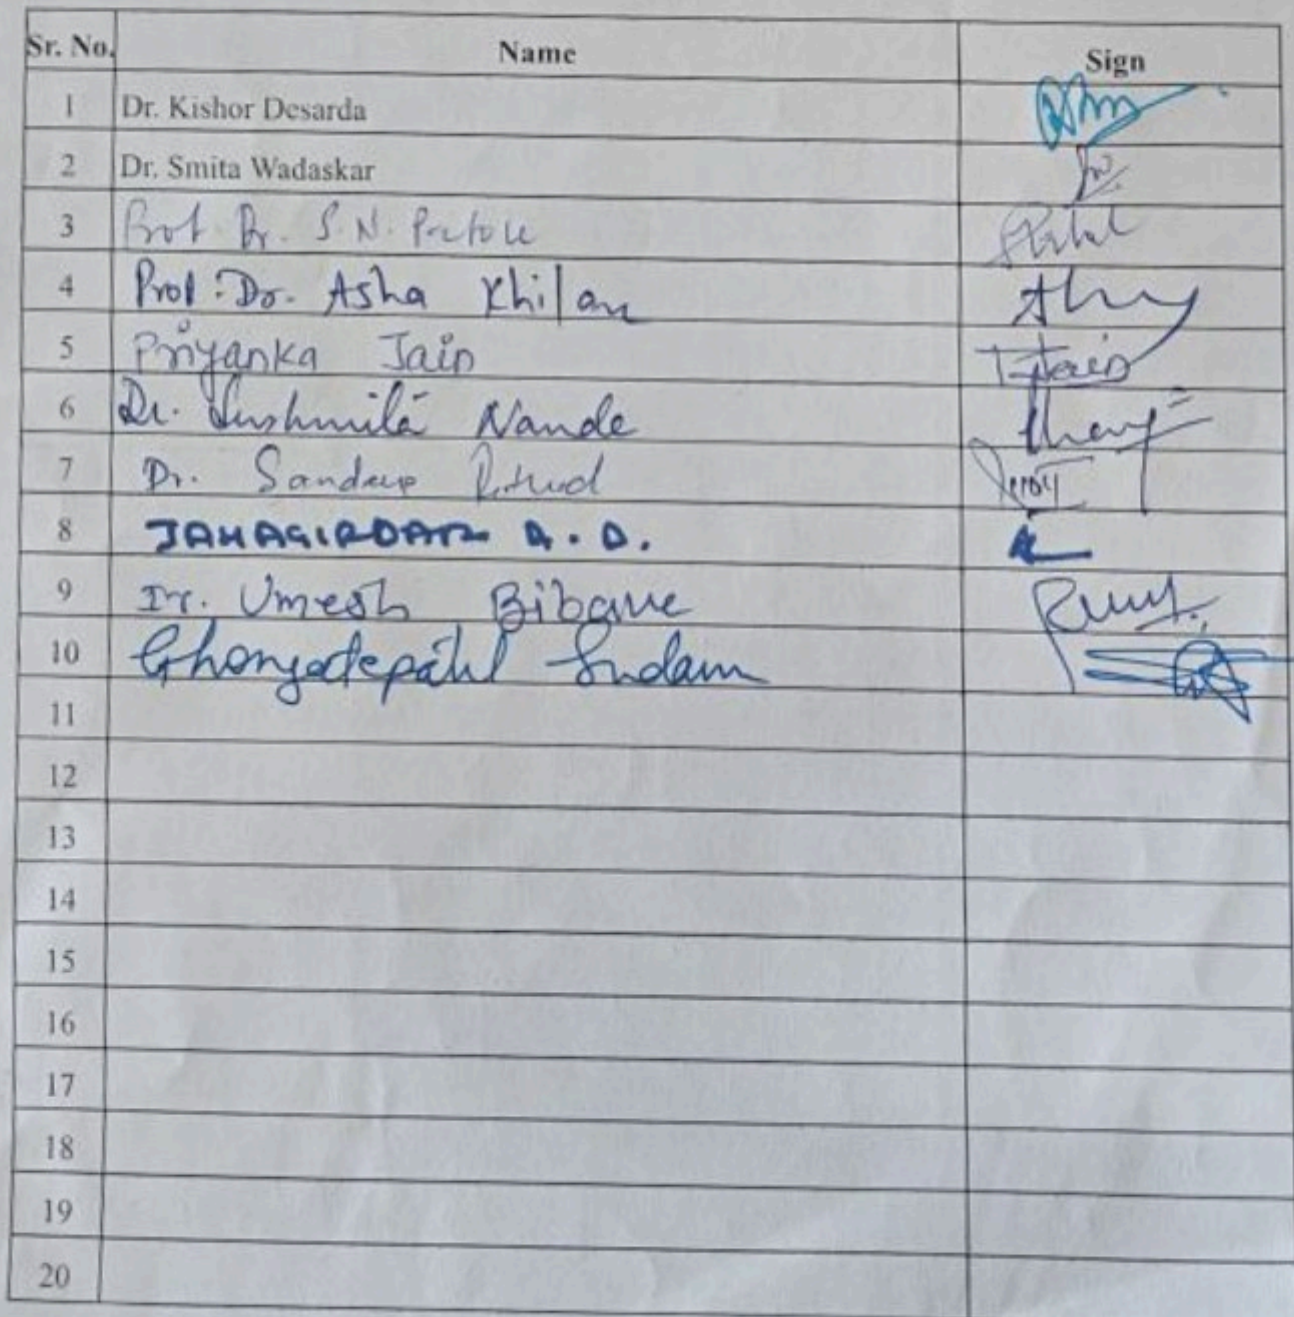 Sr. No. Name Sign
1 Dr. Kishor Desarda
2 Dr. Smita Wadaskar
3 Prof. Dr. S. N.
4 Prof. Dr. Asha Khilare
5 Priyanka Jain
6 Dr. Sushmita Nande
7 Dr. Sandeep Rathod
8 JAHAGIRDAR A. D.
9 Dr. Umesh Bibave
10 Ghongatepatil Sudam
11
12
13
14
15
16
17
18
19
20